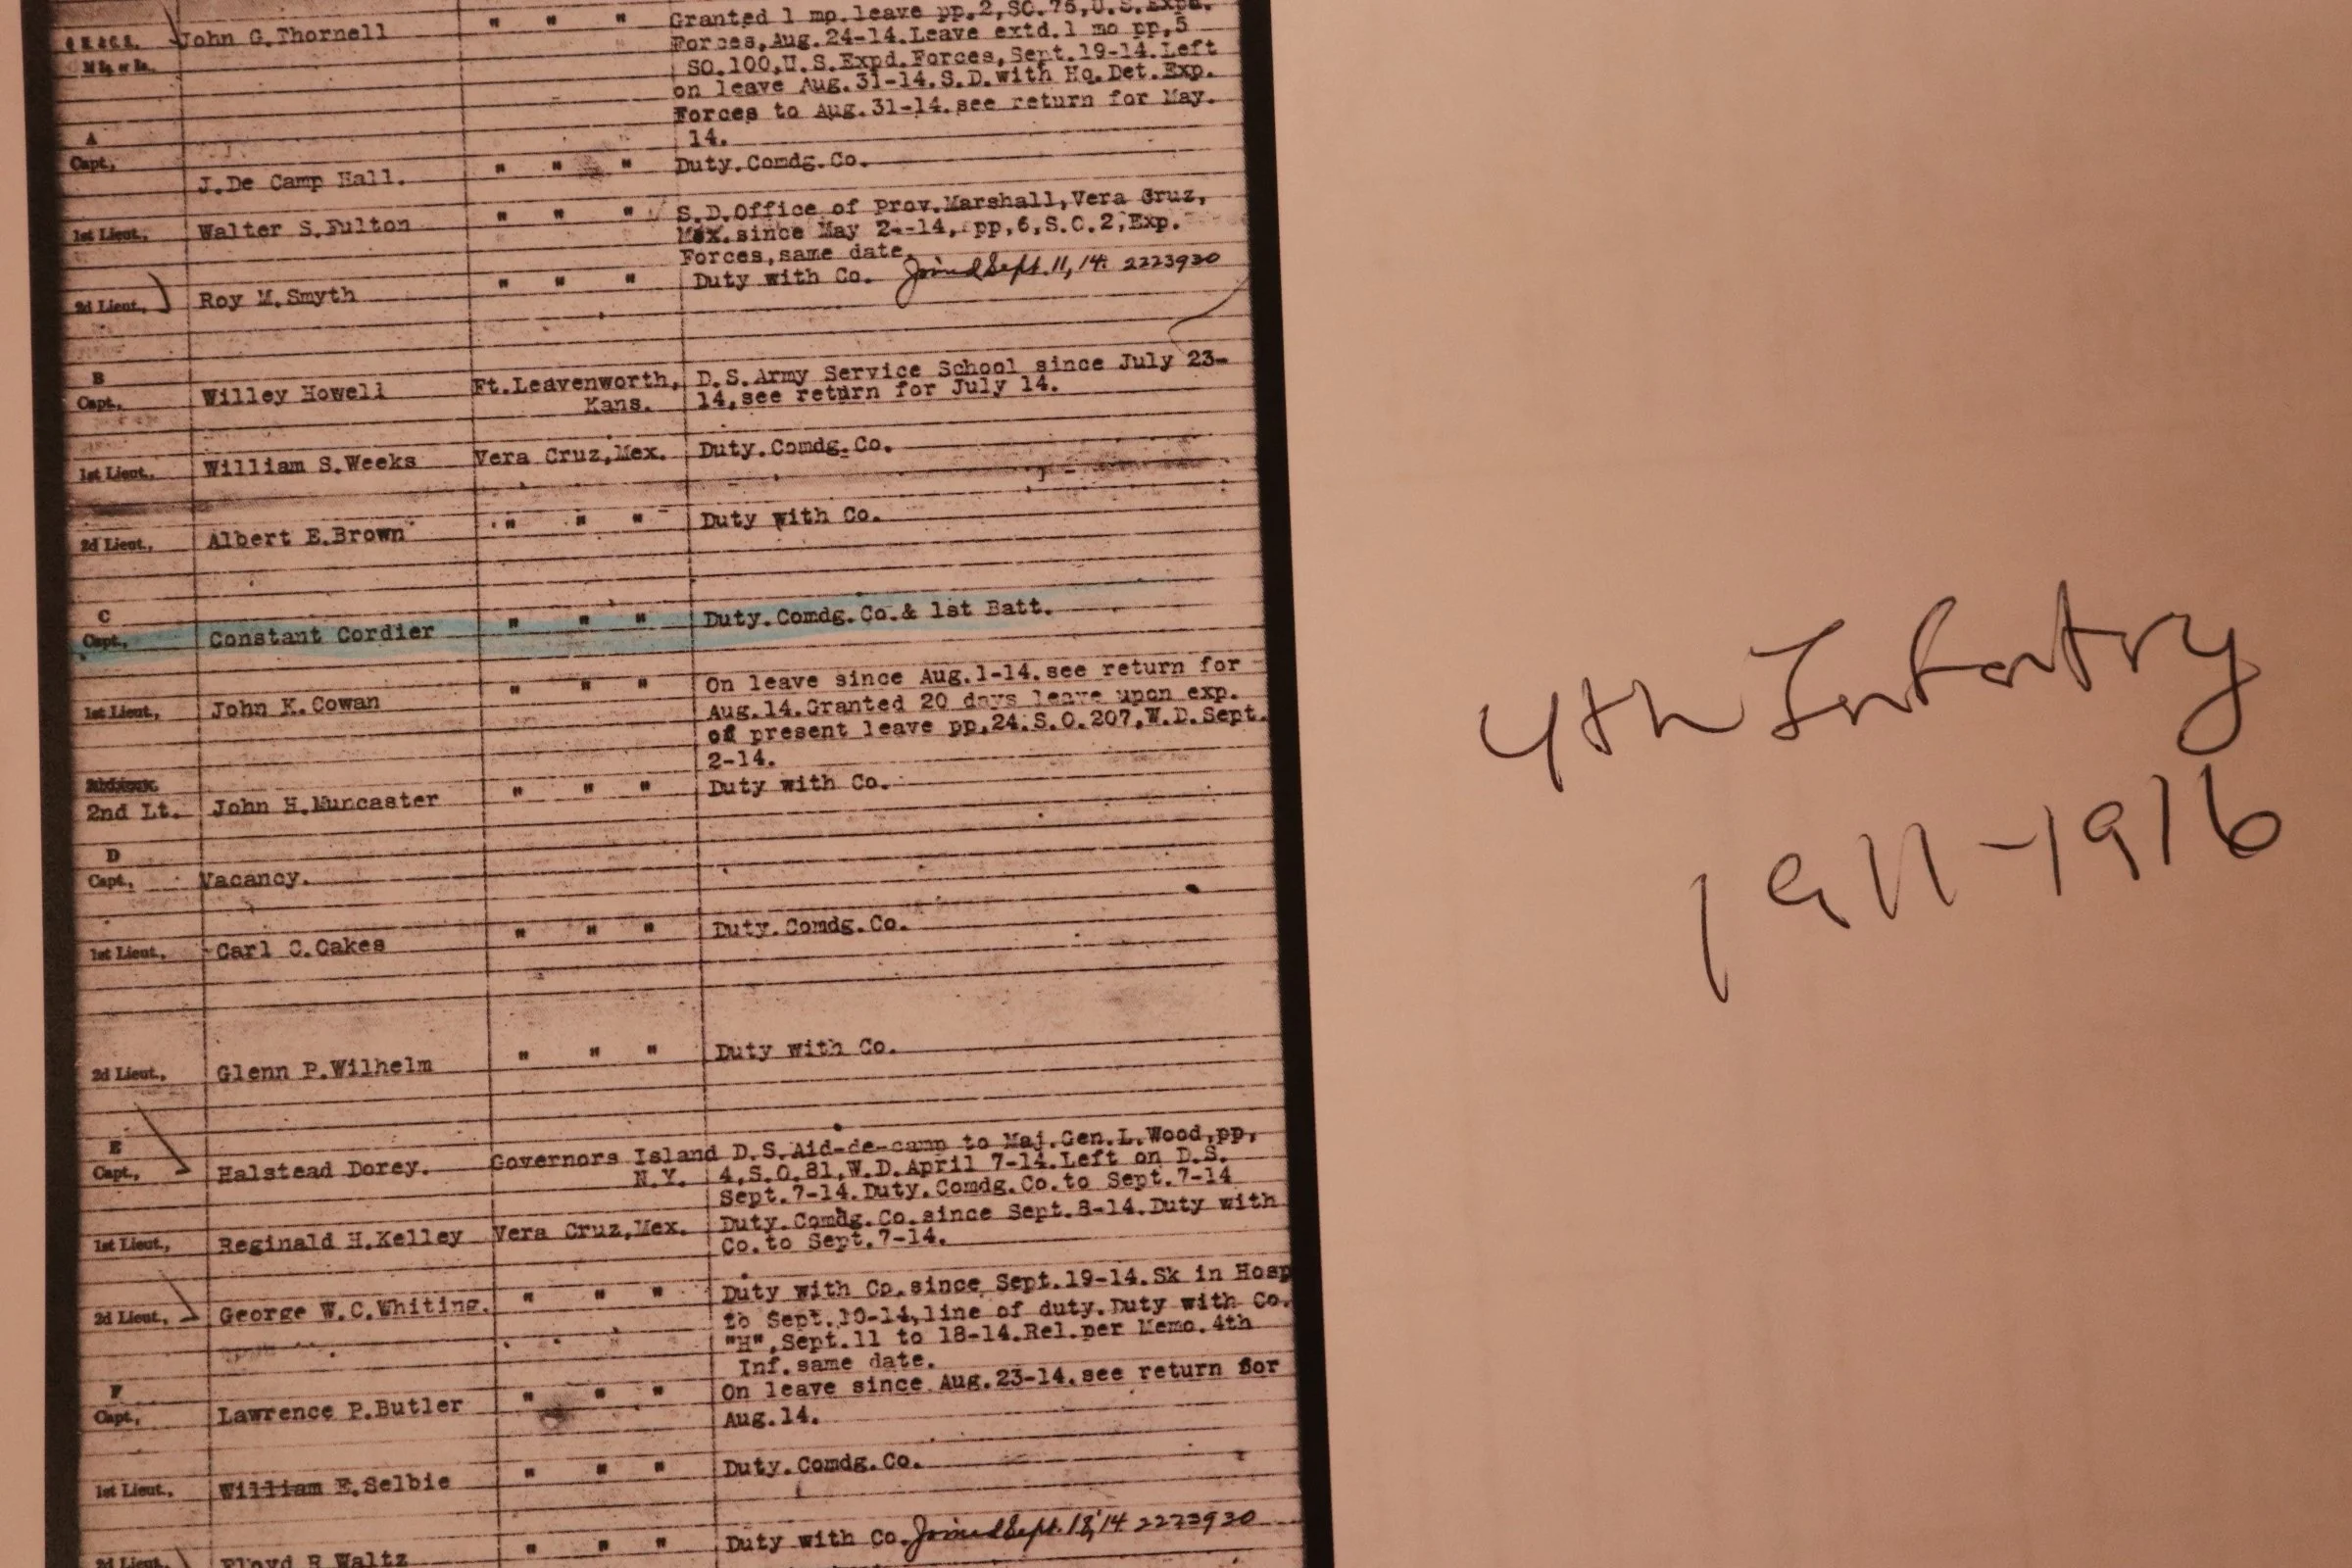 John G.Thornell " " " Granted 1 mo.leave pp.2,SO.76,U.S.Expd.
Forces,Aug.24-14.Leave extd.1 mo pp,5
M Sq. or Bn.
SO.100,U.S.Expd.Forces,Sept.19-14.Left
on leave Aug.31-14.S.D.with Hq.Det.Exp.
Forces to Aug.31-14.see return for May.
14.
A
Capt., J.De Camp Hall. " " " Duty.Comdg.Co.
1st Lieut., Walter S.Fulton " " " S.D.Office of Prov.Marshall,Vera Cruz,
Mex.since May 2-14, pp,6,S.O.2,Exp.
Forces,same date.
2d Lieut., Roy M.Smyth " " " Duty with Co. Joined Sept. 11, 14. 2223930
B
Capt., Willey Howell Ft.Leavenworth, D.S.Army Service School since July 23-
Kans. 14,see return for July 14.
1st Lieut., William S.Weeks Vera Cruz,Mex. Duty.Comdg.Co.
2d Lieut., Albert E.Brown " " " Duty with Co.
C
Capt., Constant Cordier " " " Duty.Comdg.Co.& 1st Batt.
1st Lieut., John K.Cowan " " " On leave since Aug.1-14.see return for
Aug.14.Granted 20 days leave upon exp.
of present leave pp,24.S.O.207,W.D.Sept.
2-14.
2nd Lt. John H.Muncaster " " " Duty with Co.
D
Capt., Vacancy.
1st Lieut., Carl C.Oakes " " " Duty.Comdg.Co.
2d Lieut., Glenn P.Wilhelm " " " Duty with Co.
E
Capt., Halstead Dorey. Governors Island D.S.Aid-de-camp to Maj.Gen.L.Wood,pp,
N.Y. 4,S.O.81,W.D.April 7-14.Left on D.S.
Sept.7-14.Duty.Comdg.Co.to Sept.7-14
1st Lieut., Reginald H.Kelley Vera Cruz,Mex. Duty.Comdg.Co.since Sept.8-14.Duty with
Co.to Sept.7-14.
2d Lieut., George W.C.Whiting. " " " Duty with Co.since Sept.19-14.Sk in Hosp
to Sept.10-14,line of duty.Duty with Co.
"H",Sept.11 to 18-14.Rel.per Memo.4th
Inf.same date.
F
Capt., Lawrence P.Butler " " " On leave since Aug.23-14.see return for
Aug.14.
1st Lieut., William E.Selbie " " " Duty.Comdg.Co.
2d Lieut., Floyd R.Waltz " " " Duty with Co. Joined Sept. 18, '14 2223930
4th Infantry
1911-1916